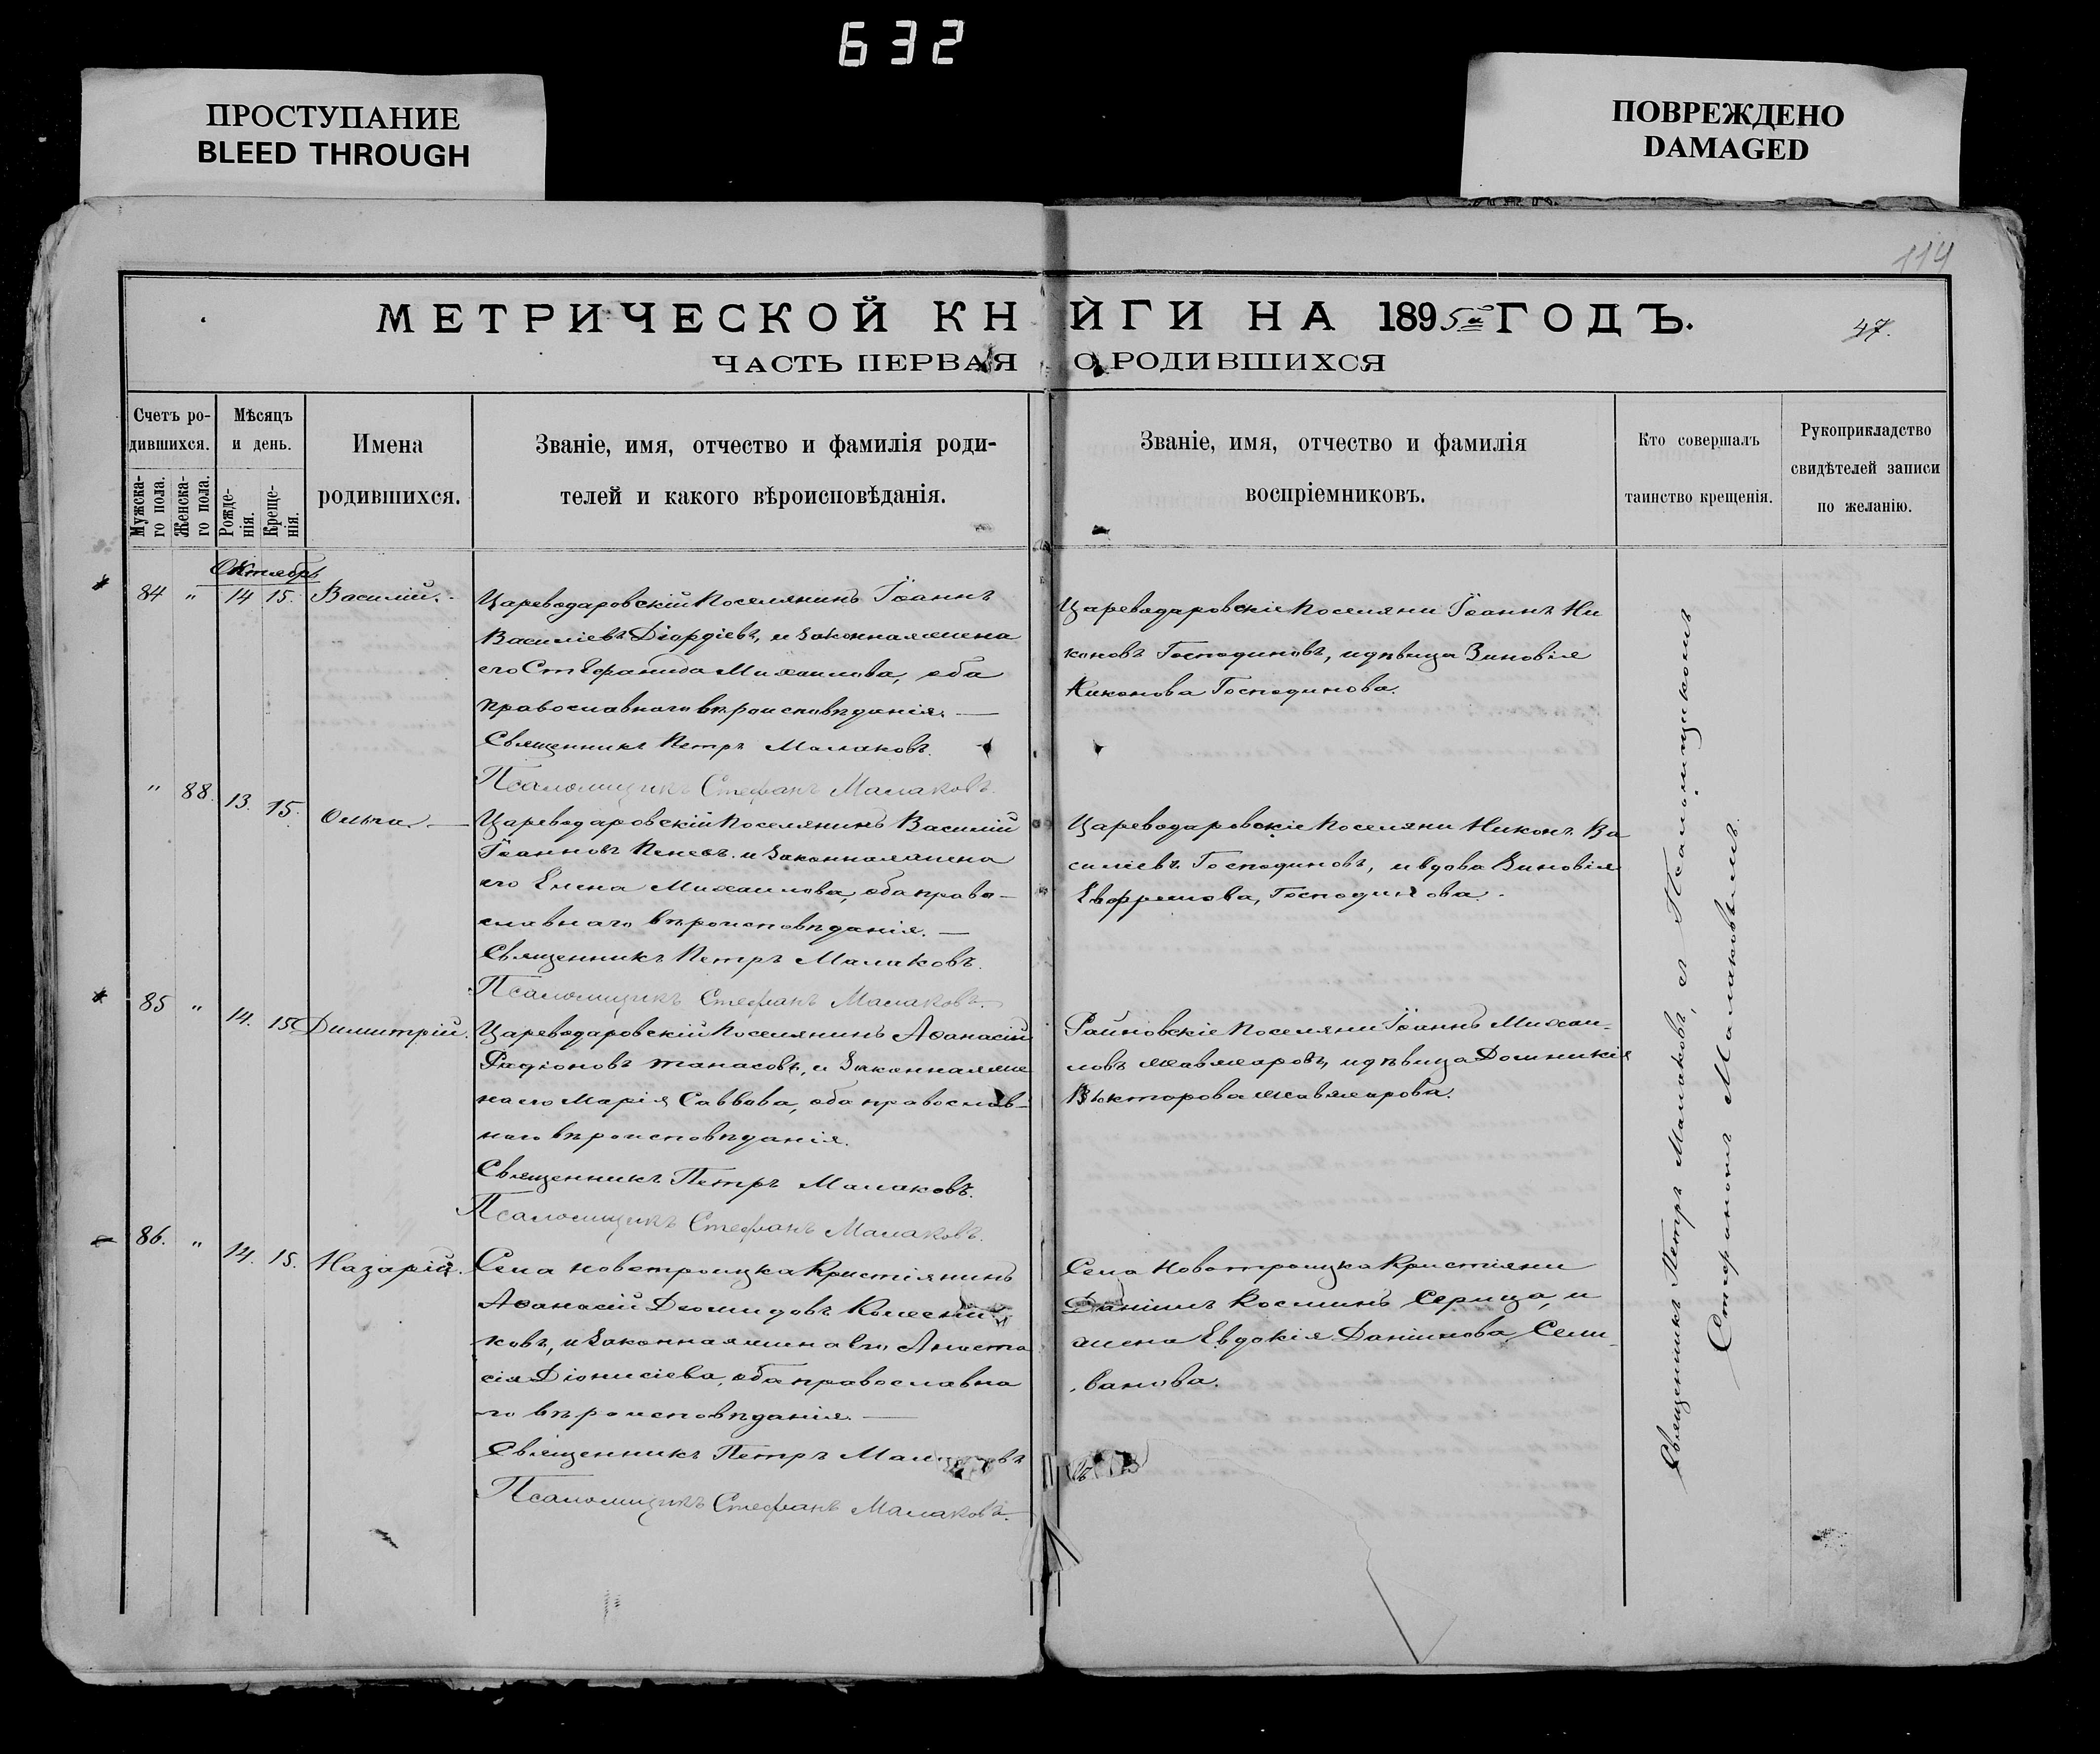 632
ПРОСТУПАНИЕ
BLEED THROUGH
ПОВРЕЖДЕНО
DAMAGED
114
МЕТРИЧЕСКОЙ КНИГИ НА 1895й ГОДЪ.
47.
ЧАСТЬ ПЕРВАЯ О РОДИВШИХСЯ
Счетъ ро-
дившихся.
Мужска-
го пола.
Женска-
го пола.
Мѣсяцъ
и день.
Рожде-
нія.
Креще-
нія.
Имена
родившихся.
Званіе, имя, отчество и фамилія роди-
телей и какого вѣроисповѣданія.
Званіе, имя, отчество и фамилія
воспріемниковъ.
Кто совершалъ
таинство крещенія.
Рукоприкладство
свидѣтелей записи
по желанію.
Октябрь
84 " 14 15. Василій.
Цареводаровскій Поселянинъ Іоаннъ
Василіевъ Діордіевъ, и Законная жена
его Стефанида Михаилова, оба
православнаго вѣроисповѣданія. —
Священникъ Петръ Малаковъ.
Псаломщикъ Стефанъ Малаковъ.
Цареводаровскіе Поселяни Іоаннъ Ни
коновъ Господиновъ, и дѣвица Зиновія
Никонова Господинова.
" 88. 13. 15. Ольга. —
Цареводаровскій Поселянинъ Василій
Іоанновъ Пеневъ. и Законная жена
его Елена Михаилова, оба право-
славнаго вѣроисповѣданія. —
Священникъ Петръ Малаковъ.
Псаломщикъ Стефанъ Малаковъ.
Цареводаровскіе Поселяни Никонъ Ва
силіевъ Господиновъ, и вдова Зиновія
Господинова.
85 " 14. 15. Димитрій.
Цареводаровскій Поселянинъ Аѳанасій
Радіоновъ Танасовъ, и Законная же
на его Марія Саввова, оба православ-
наго вѣроисповѣданія.
Священникъ Петръ Малаковъ.
Псаломщикъ Стефанъ Малаковъ.
Райновскіе Поселяни Іоаннъ Михаи-
ловъ Жавжаровъ, и дѣвица Домникія
Вѣкторова Жавжарова.
86. " 14. 15. Назарій.
Села Новотроицка Кристіянинъ
Аѳанасій Діомидовъ Колесни
ковъ, и Законная жена Его Анаста
сія Діонисіева, оба православна
го вѣроисповѣданія. —
Священникъ Петръ Малаковъ
Псаломщикъ Стефанъ Малаковъ.
Села Новотроицка Кристіяни
Даніилъ Косминъ Серица, и
жена Евдокія Даніилова Сели-
ванова.
Священникъ Петръ Малаковъ, съ Псаломщикомъ
Стефаномъ Малаковымъ.